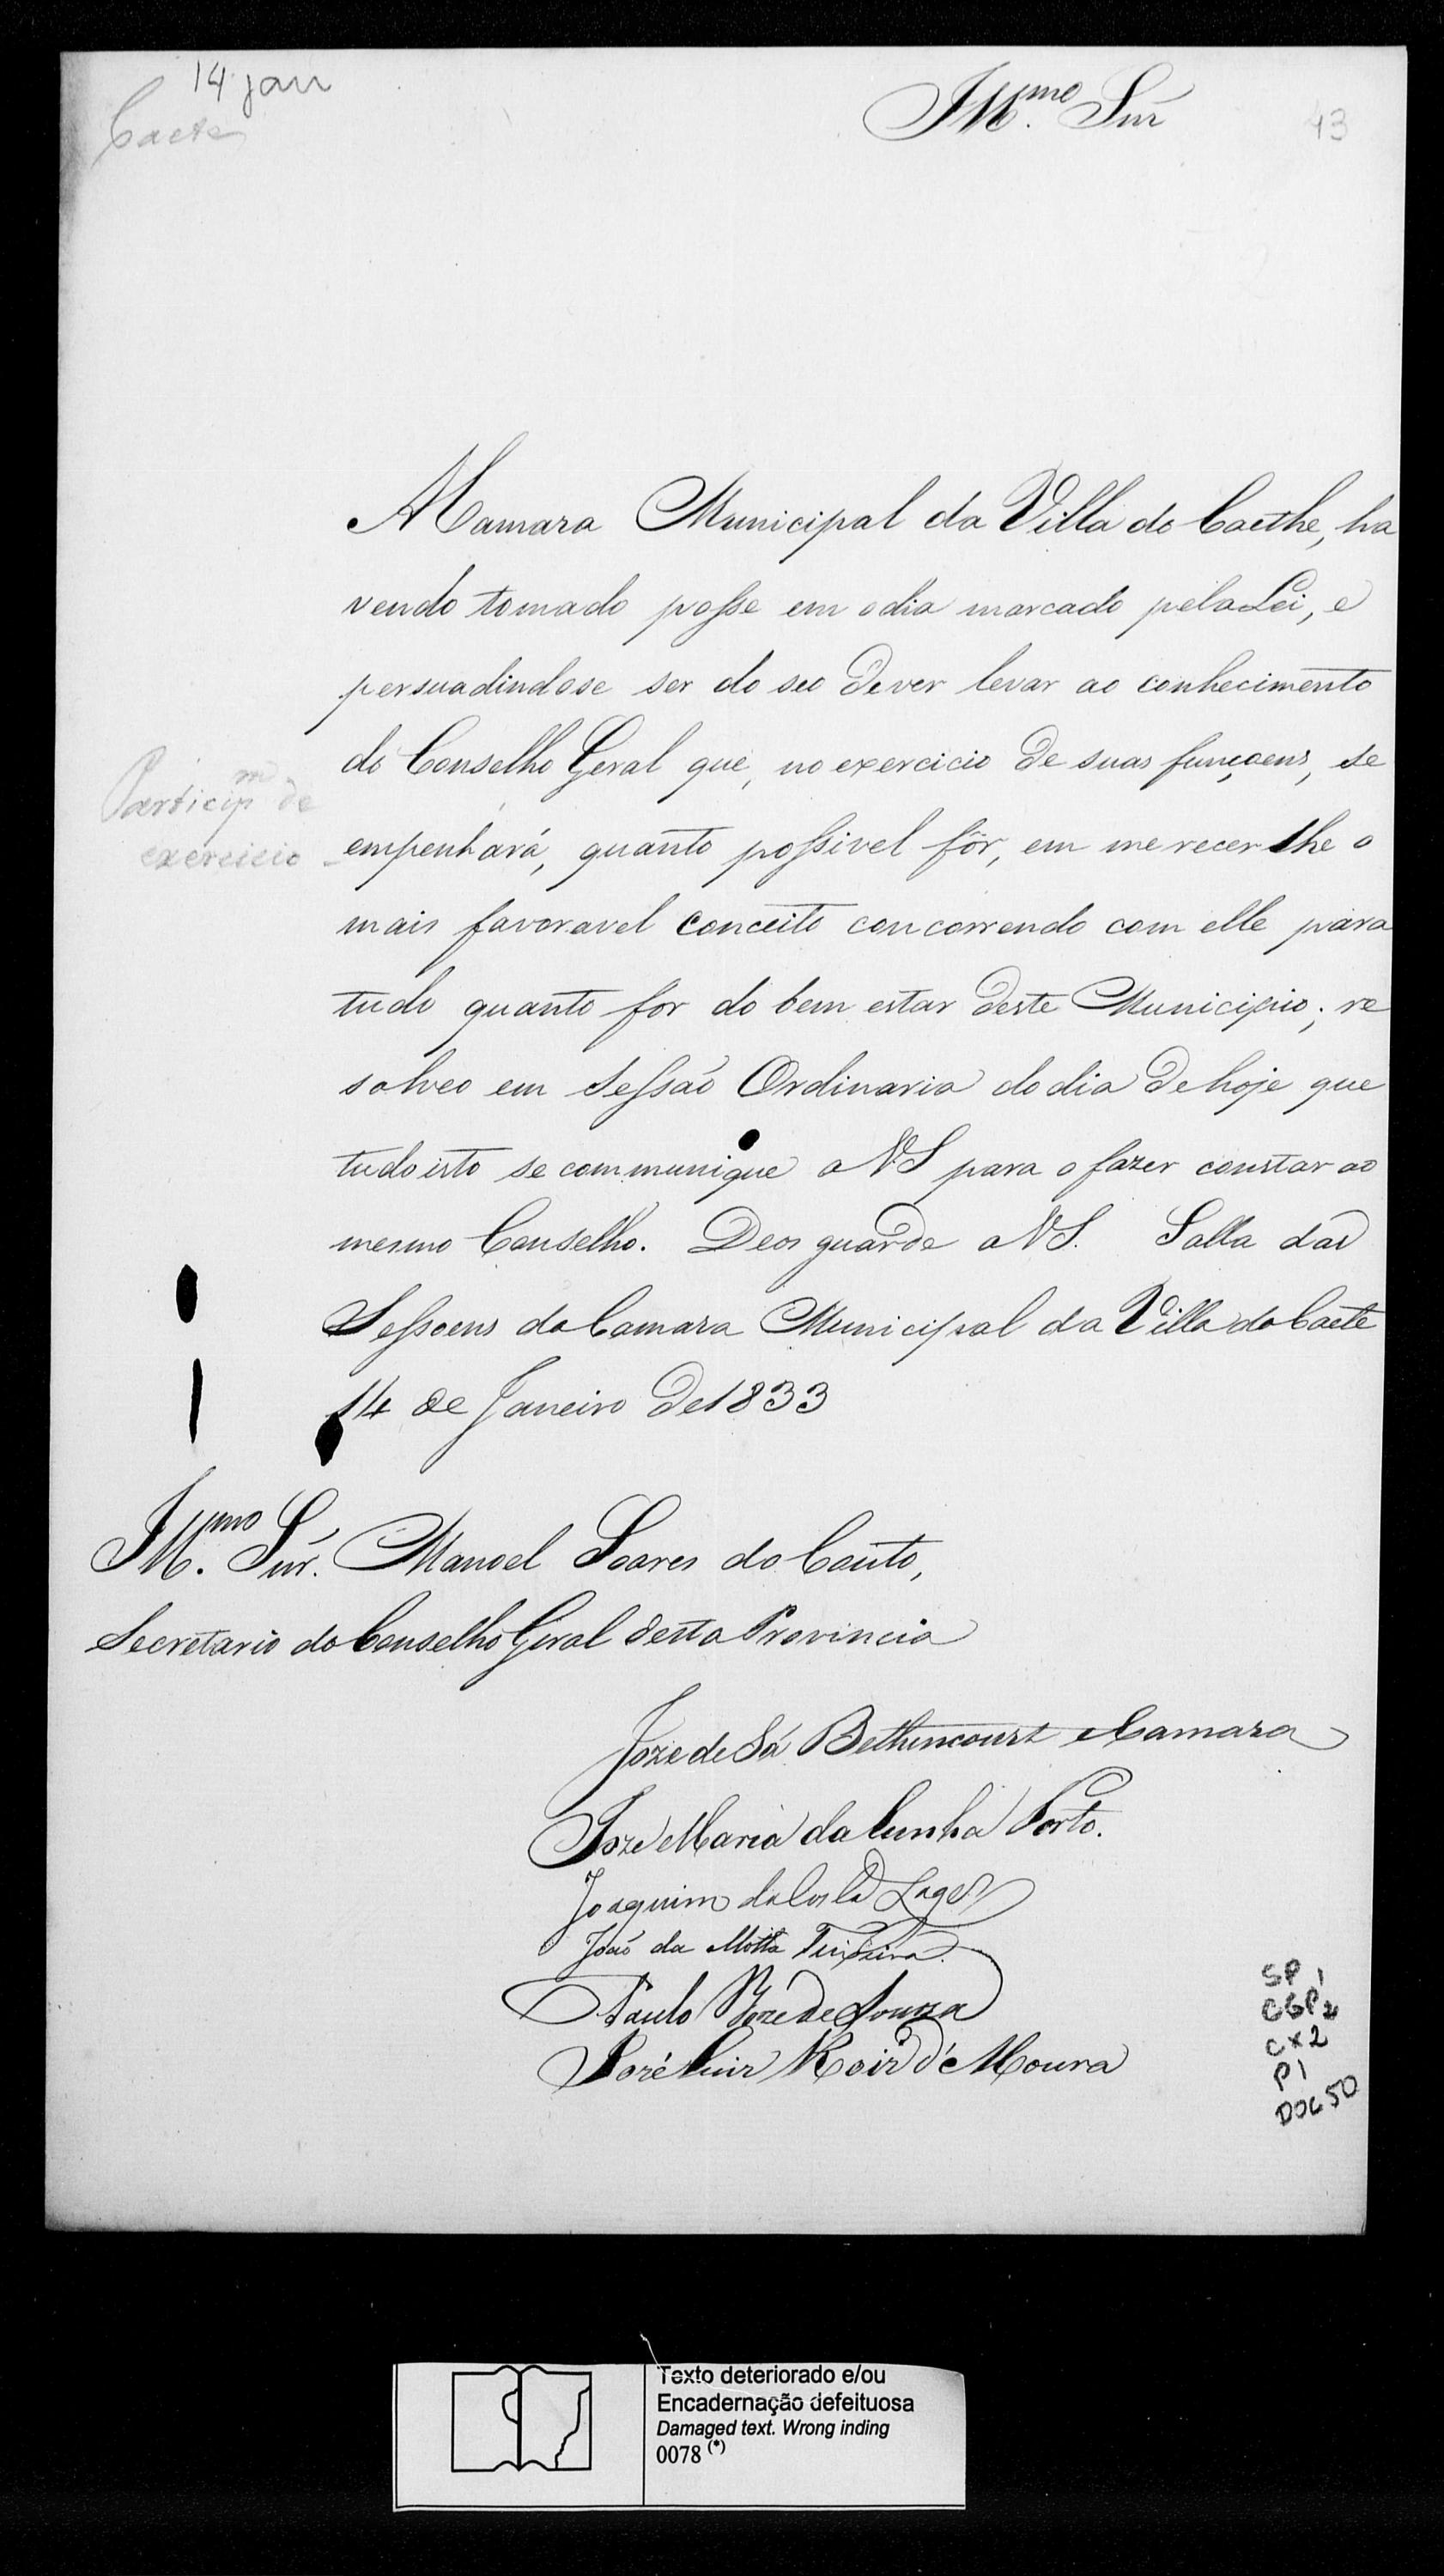 14 jan
Caete
Illmo. Snr
43
A Camara Municipal da Villa do Caethe, ha
vendo tomado posse em o dia marcado pela Lei, e
persuadindose ser do seo dever levar ao conhecimento
do Conselho Geral que, no exercicio de suas funçoens, se
Particip.m de
exercicio
empenhará, quanto possivel fôr, em merecerlhe o
mais favoravel conceito concorrendo com elle para
tudo quanto for do bem estar deste Municipio; re
solveo em Sessão Ordinaria do dia de hoje que
tudo isto se communique a VS para o fazer constar ao
mesmo Conselho. Deos guarde a VS. Salla das
Sessoens da Camara Municipal da Villa do Caete
14 de Janeiro de 1833
Illmo. Snr. Manoel Soares do Couto,
Secretario do Conselho Geral desta Provincia
Joze de Sá Bethencourt e Camara
Joze Maria da Cunha Porto.
Joaquim da Costa Lage
João da Motta Teixeira.
Paulo Joze de Souza
José Luiz Roiz d'e Moura
SP 1
CGP 2
CX 2
P1
DOC 50
Texto deteriorado e/ou
Encadernação defeituosa
Damaged text. Wrong inding
0078 (*)